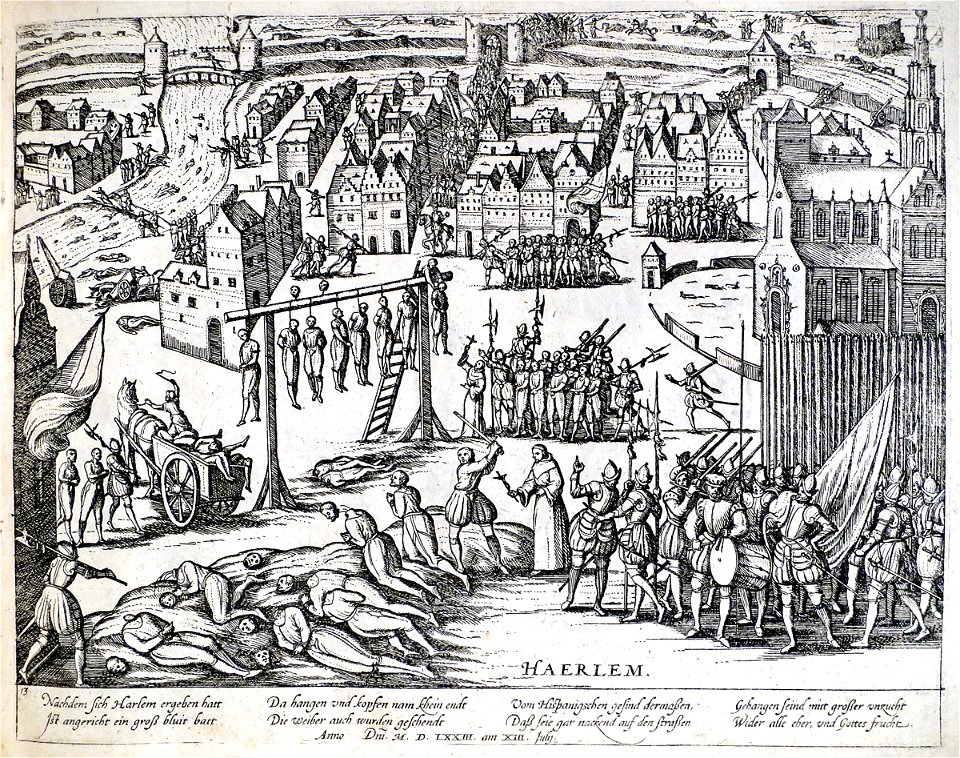 HAERLEM.
13
Nachdem sich Harlem ergeben hatt
Ist angericht ein groß bluit batt
Da hangen vnd kopfen nam khein endt
Die weiber auch wurden geschendt
Vom Hispanischen gesind dermaßen,
Daß seie gar nackend auf den straßen
Gehangen seind mitt großer vnzucht
Wider alle eher, vnd Gottes frucht.
Anno Dm̃. M. D. LXXIII. am XIII. Julij.